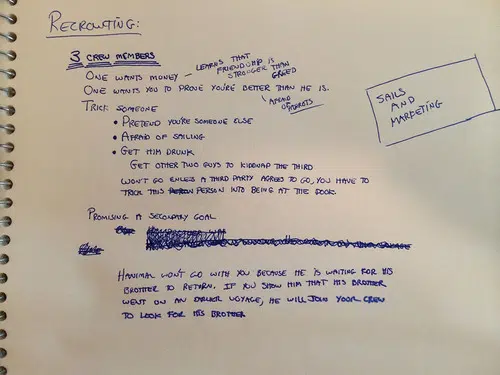 RECROUTING:
3 CREW MEMBERS
ONE WANTS MONEY - LEARNS THAT
FRIENDSHIP IS
STRONGER THAN
GREED
ONE WANTS YOU TO PROVE YOU'RE BETTER THAN HE IS.
AFRAID
OF PARROTS
TRICK SOMEONE
• PRETEND YOU'RE SOMEONE ELSE
• AFRAID OF SAILING
• GET HIM DRUNK
GET OTHER TWO GUYS TO KIDNAP THE THIRD
WON'T GO UNLESS A THIRD PARTY AGREES TO GO, YOU HAVE TO
TRICK THIS PERSON INTO BEING AT THE DOCK
SAILS
AND
MARKETING
PROMISING A SECONDARY GOAL
HANIMAL WON'T GO WITH YOU BECAUSE HE IS WAITING FOR HIS
BROTHER TO RETURN. IF YOU SHOW HIM THAT HIS BROTHER
WENT ON AN EARLIER VOYAGE, HE WILL JOIN YOUR CREW
TO LOOK FOR HIS BROTHER